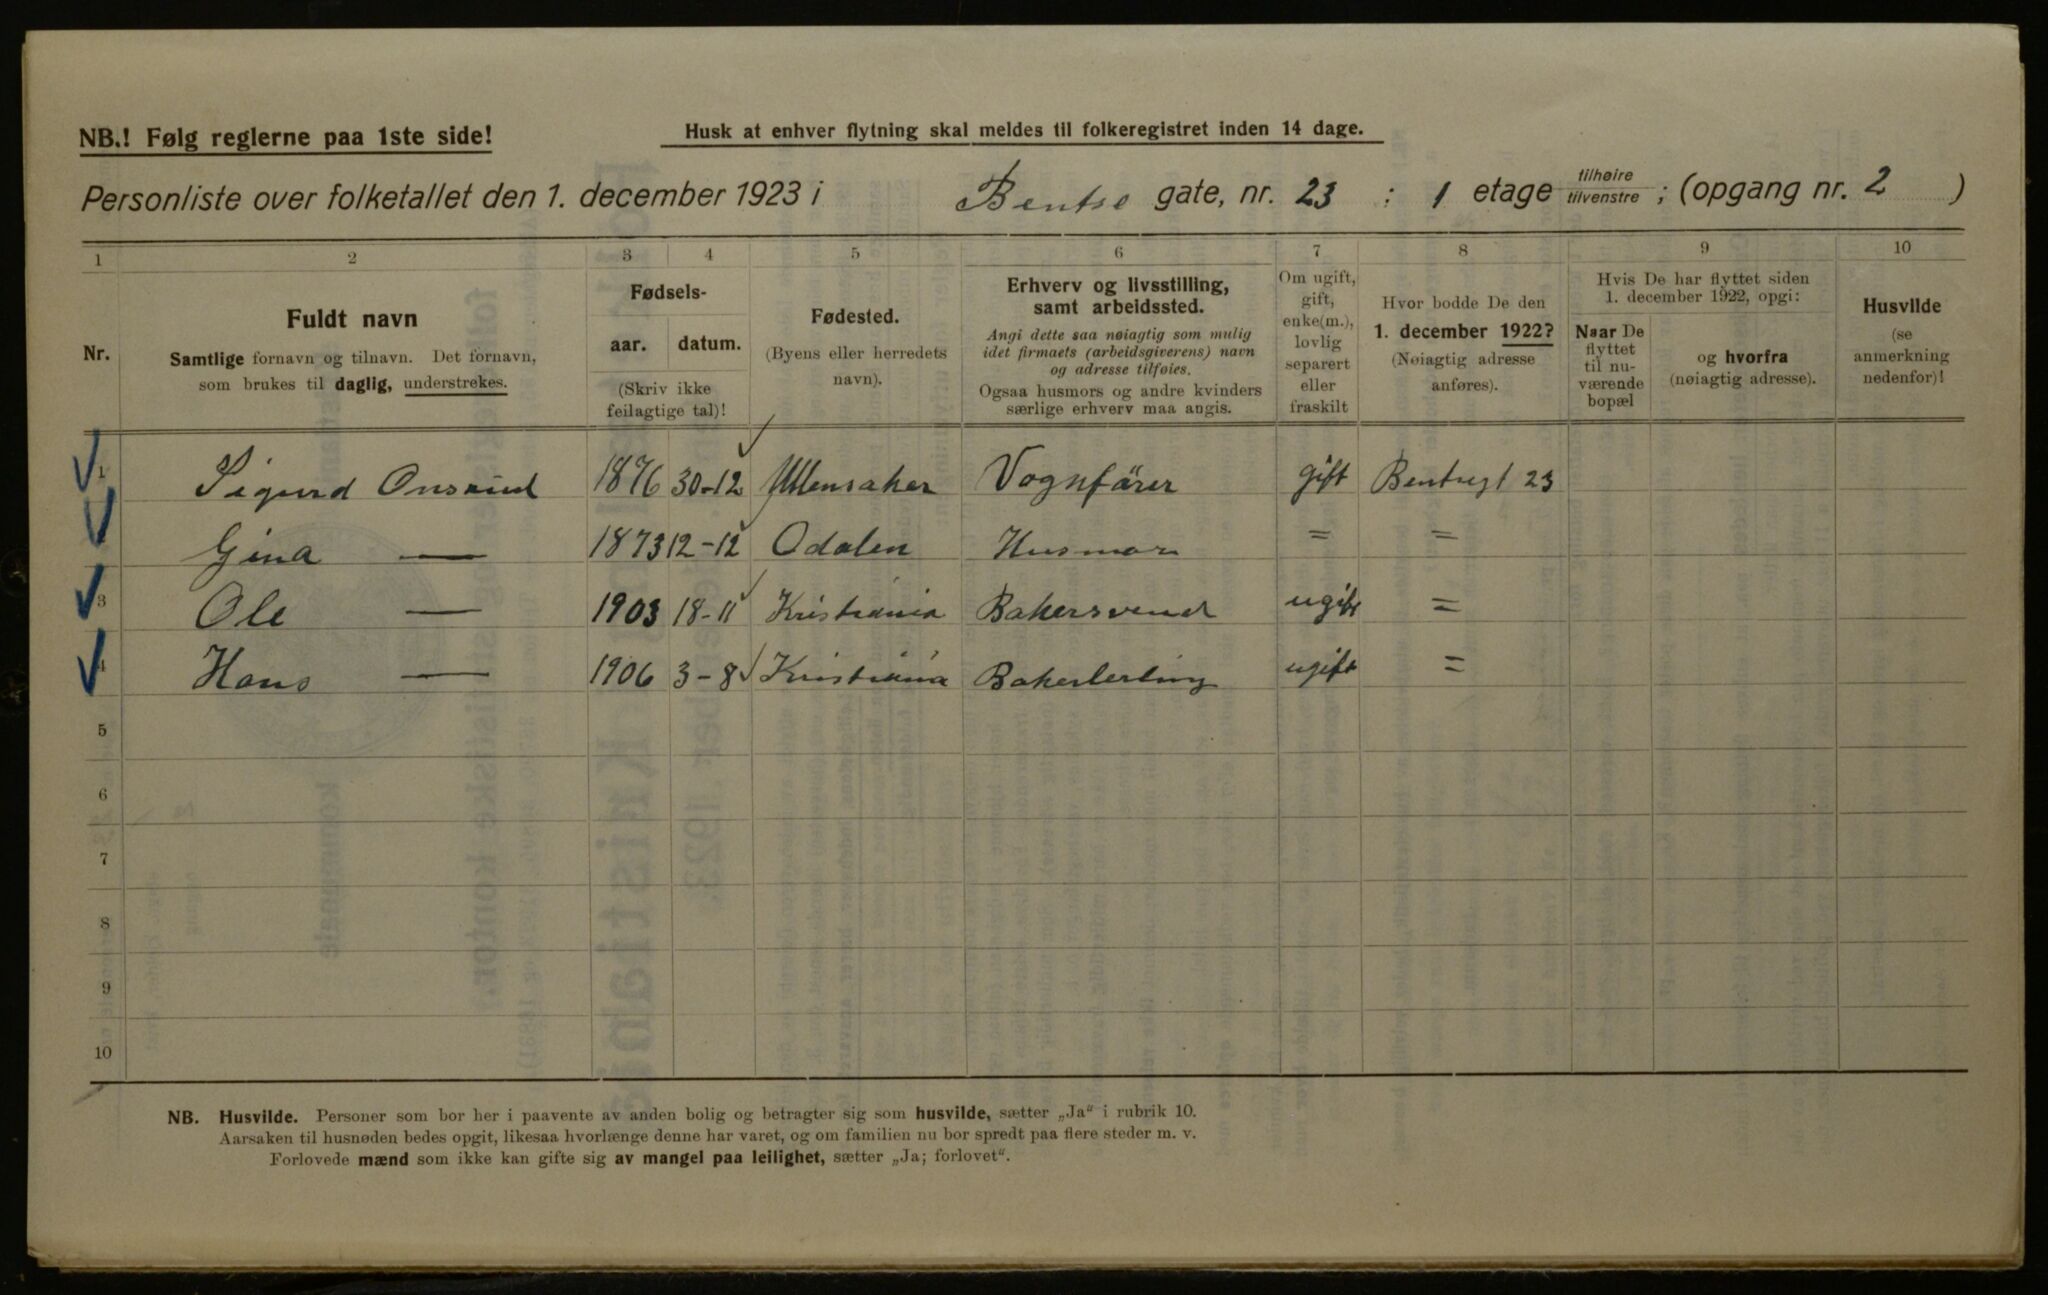 NB.! Følg reglerne paa 1ste side!
Husk at enhver flytning skal meldes til folkeregistret inden 14 dage.
Personliste over folketallet den 1. december 1923 i Bentse gate, nr. 23 : 1 etage tilhøire tilvenstre ; (opgang nr. 2 )
1 2 3 4 5 6 7 8 9 10
Nr.
Fuldt navn
Samtlige fornavn og tilnavn. Det fornavn,
som brukes til daglig, understrekes.
Fødsels-
aar. datum.
(Skriv ikke
feilagtige tal)!
Fødested.
(Byens eller herredets
navn).
Erhverv og livsstilling,
samt arbeidssted.
Angi dette saa nøiagtig som mulig
idet firmaets (arbeidsgiverens) navn
og adresse tilføies.
Ogsaa husmors og andre kvinders
særlige erhverv maa angis.
Om ugift,
gift,
enke(m.),
lovlig
separert
eller
fraskilt
Hvor bodde De den
1. december 1922?
(Nøiagtig adresse
anføres).
Hvis De har flyttet siden
1. december 1922, opgi:
Naar De
flyttet
til nu-
værende
bopæl
og hvorfra
(nøiagtig adresse).
Husvilde
(se
anmerkning
nedenfor)!
1 Sigurd Onsrud 1876 30-12 Ullensaker Vognfører gift Bentsegt 23
Gina — 1873 12-12 Odalen Husmor = =
3 Ole — 1903 18-11 Kristiania Bakersvend ugift =
4 Hans — 1906 3-8 Kristiania Bakerlerling ugift =
5
6
7
8
9
10
NB. Husvilde. Personer som bor her i paavente av anden bolig og betragter sig som husvilde, sætter „Ja" i rubrik 10.
Aarsaken til husnøden bedes opgit, likesaa hvorlænge denne har varet, og om familien nu bor spredt paa flere steder m. v.
Forlovede mænd som ikke kan gifte sig av mangel paa leilighet, sætter „Ja; forlovet".